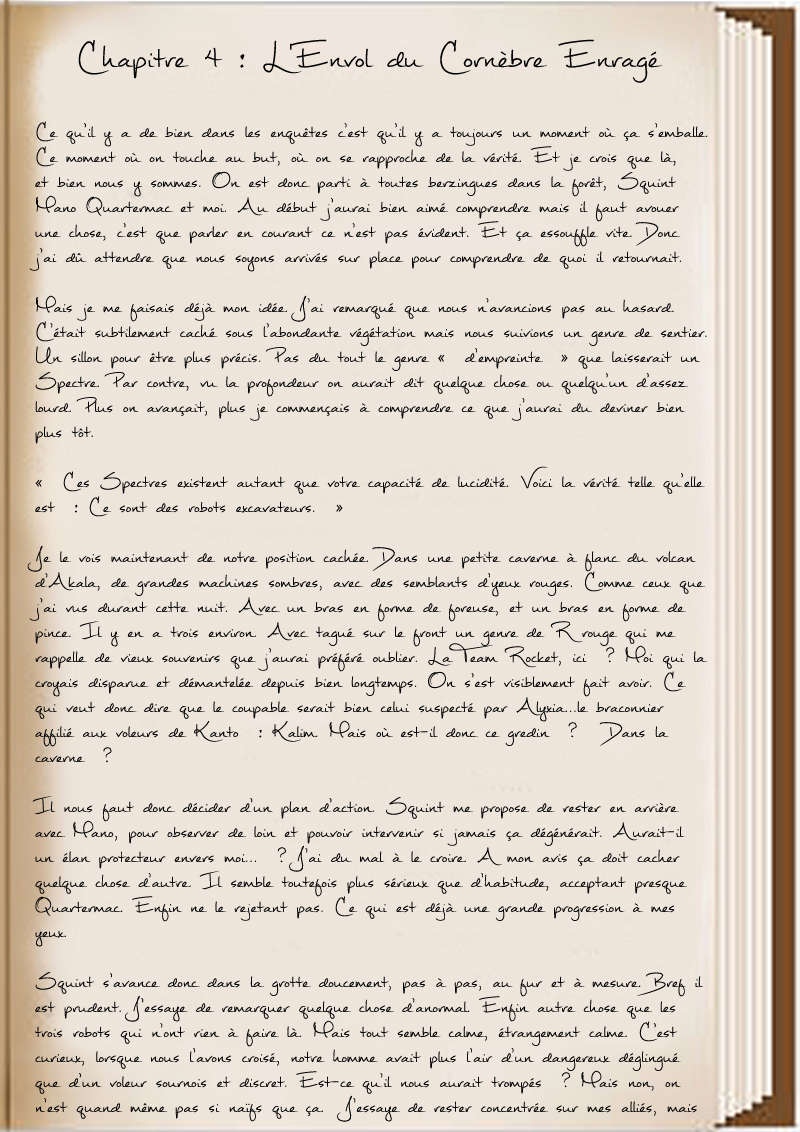 Chapitre 4 : L'Envol du Cornèbre Enragé
Ce qu'il y a de bien dans les enquêtes c'est qu'il y a toujours un moment où ça s'emballe.
Ce moment où on touche au but, où on se rapproche de la vérité. Et je crois que là,
et bien nous y sommes. On est donc parti à toutes berzingues dans la forêt, Squint
Mano Quartermac et moi. Au début j'aurai bien aimé comprendre mais il faut avouer
une chose, c'est que parler en courant ce n'est pas évident. Et ça essouffle vite. Donc
j'ai dû attendre que nous soyons arrivés sur place pour comprendre de quoi il retournait.
Mais je me faisais déjà mon idée. J'ai remarqué que nous n'avancions pas au hasard.
C'était subtilement caché sous l'abondante végétation mais nous suivions un genre de sentier.
Un sillon pour être plus précis. Pas du tout le genre « d'empreinte » que laisserait un
Spectre. Par contre, vu la profondeur on aurait dit quelque chose ou quelqu'un d'assez
lourd. Plus on avançait, plus je commençais à comprendre ce que j'aurai du deviner bien
plus tôt.
« Ces Spectres existent autant que votre capacité de lucidité. Voici la vérité telle qu'elle
est : Ce sont des robots excavateurs. »
Je le vois maintenant de notre position cachée. Dans une petite caverne à flanc du volcan
d'Akala, de grandes machines sombres, avec des semblants d'yeux rouges. Comme ceux que
j'ai vus durant cette nuit. Avec un bras en forme de foreuse, et un bras en forme de
pince. Il y en a trois environ. Avec tagué sur le front un genre de R rouge qui me
rappelle de vieux souvenirs que j'aurai préféré oublier. La Team Rocket, ici ? Moi qui la
croyais disparue et démantelée depuis bien longtemps. On s'est visiblement fait avoir. Ce
qui veut donc dire que le coupable serait bien celui suspecté par Alyxia...le braconnier
affilié aux voleurs de Kanto : Kalim. Mais où est-il donc ce gredin ? Dans la
caverne ?
Il nous faut donc décider d'un plan d'action. Squint me propose de rester en arrière
avec Mano, pour observer de loin et pouvoir intervenir si jamais ça dégénérait. Aurait-il
un élan protecteur envers moi... ? J'ai du mal à le croire. A mon avis ça doit cacher
quelque chose d'autre. Il semble toutefois plus sérieux que d'habitude, acceptant presque
Quartermac. Enfin ne le rejetant pas. Ce qui est déjà une grande progression à mes
yeux.
Squint s'avance donc dans la grotte doucement, pas à pas, au fur et à mesure. Bref il
est prudent. J'essaye de remarquer quelque chose d'anormal. Enfin autre chose que les
trois robots qui n'ont rien à faire là. Mais tout semble calme, étrangement calme. C'est
curieux, lorsque nous l'avons croisé, notre homme avait plus l'air d'un dangereux déglingué
que d'un voleur sournois et discret. Est-ce qu'il nous aurait trompés ? Mais non, on
n'est quand même pas si naïfs que ça. J'essaye de rester concentrée sur mes alliés, mais